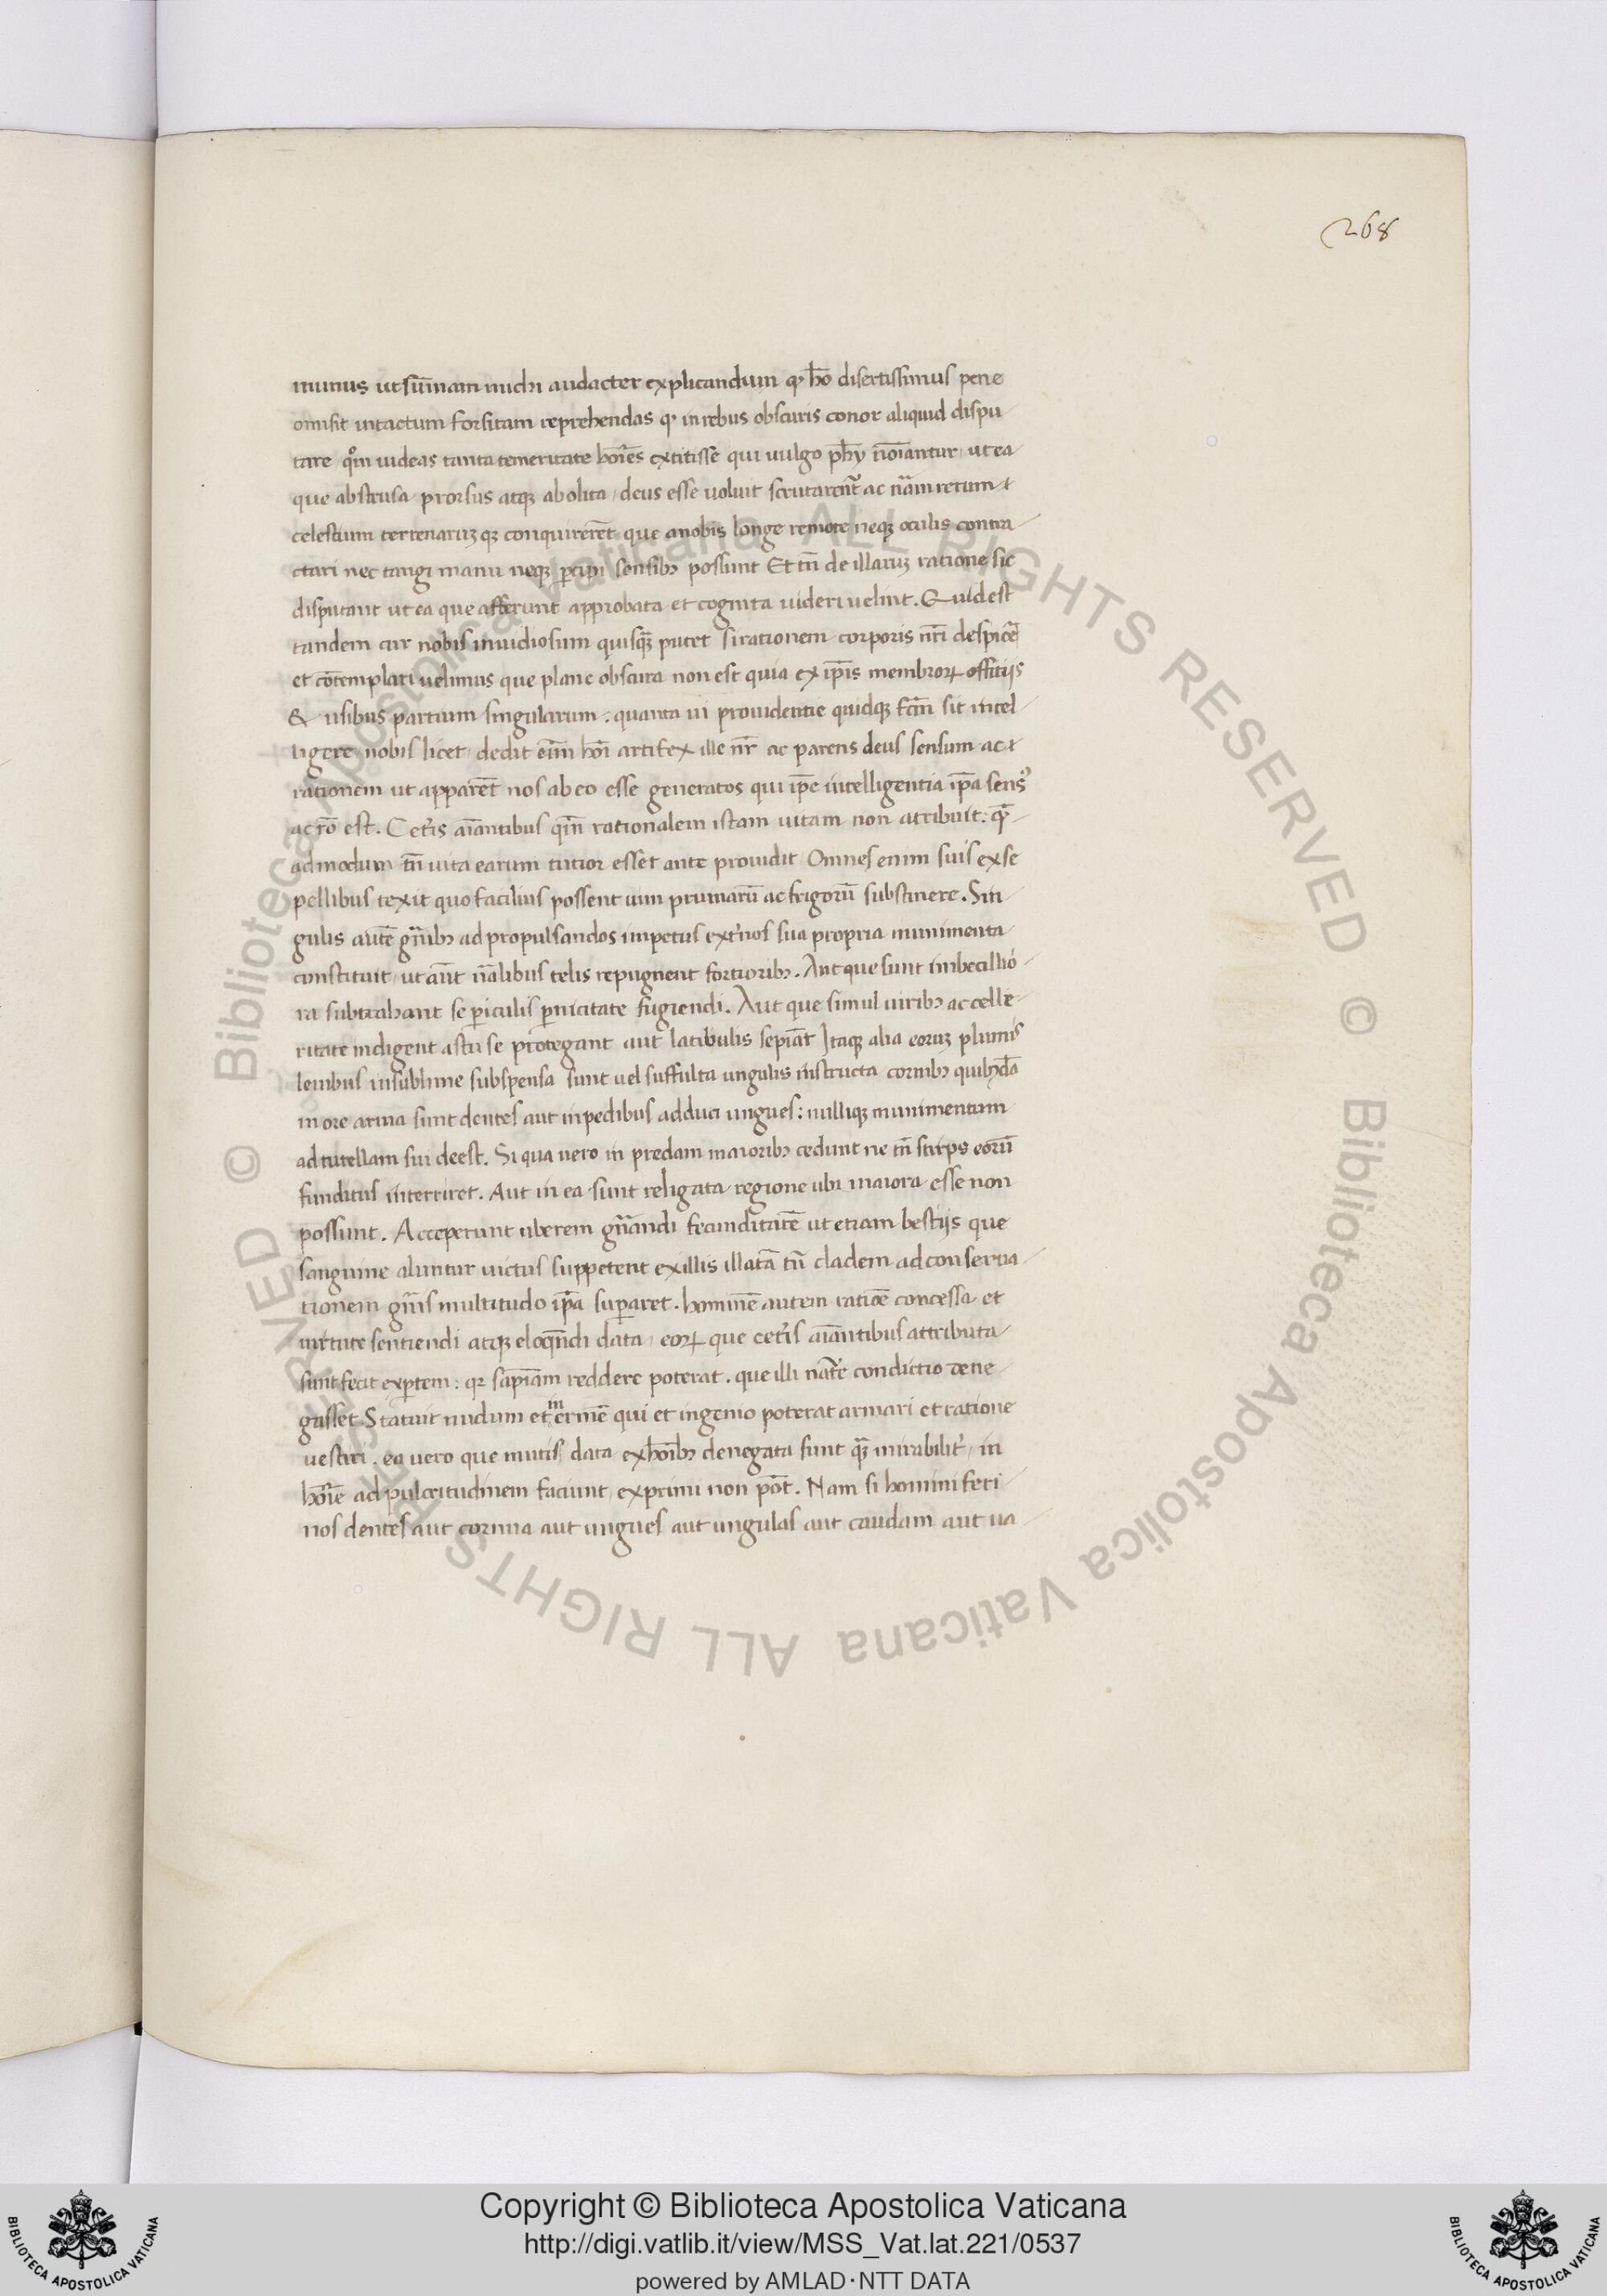 268
munus ut sūmam michi audacter explicandum qꝫ hō disertissimus pene
omisit intactum forsitam reprehendas qꝫ in rebus obscuris conor aliquid dispu-
tare qm̊ uideas tanta temeritate hoīes extitisse qui uulgo ph̄y noīantur ut ea
que abstrusa prorsus atqꝫ abolita deus esse uoluit scrutarent᷑ ac nām rerum
celestium terrenaruꝫ qꝫ conquirerēt que anobis longe remote neqꝫ oculis contra-
ctari nec tangi manu neqꝫ ꝑcipi sensibꝫ possunt Et tn̄ de illaruꝫ ratione sic
disputant ut ea que afferunt approbata et cognita uideri uelint. Quid est
tandem cur nobis inuidiosum quisqꝫ putet si rationem corporis nr̄i despicē
et cōtemplari uelimus que plane obscura non est quia ex ip̄is membroꝝ offitijs
& usibus partium singularum. quanta ui prouidentie quidqꝫ fc̄m sit intel-
ligere nobis licet dedit eīm hoī artifex ille nr̄ ac parens deus sensum ac
rationem ut apparēt nos ab eo esse generatos qui ip̄e intelligentia ip̄a sensꝰ
ac rō est. Cet̓is aīantibus qm̄ rationalem istam uitam non atribuit. quē-
ad modum tn̄ uita earum tutior esset ante prouidit Omnes enim suis ex se
pellibus texit quo facilius possent uim pruinarū ac frigorū substinere. Sin-
gulis autē gn̄ibꝫ ad propulsandos impetus ext̓nos sua propria munimenta
constituit ut aūt nālibus telis repugnent fortioribꝫ. Aut que sunt imbecillio-
ra subtrahant se ꝑiculis ꝑnicitate fugiendi. Aut que simul uiribꝫ ac celle-
ritate indigent astu se protegant aut latibulis sepiāt Itaqꝫ alia eoruꝫ plumis
lenibus in sublime subspensa sunt uel suffulta ungulis instructa cornibꝫ quibꝫdā
in ore arma sunt dentes aut in pedibus adduci ungues: nulliqꝫ munimentum
ad tutellam sui deest. Si qua uero in predam maioribꝫ cedunt ne tn̄ stirps eorū
funditus interriret. Aut in ea sunt religata regione ubi maiora esse non
possunt. Acceperunt uberem gn̄andi fecunditatē ut etiam bestijs que
sanguine aluntur uictus suppetent ex illis illatā tn̄ cladem ad conserua-
tionem gn̄is multitudo ip̄a suꝑaret. hominē autem ratiōe concessa et
uirtute sentiendi atqꝫ eloqn̄di data eoꝝ que cet̓is aīantibus attributa
sunt fecit exꝑtem: qꝫ sapīam reddere poterat. que illi nat̓e condictio dene-
gasset. Statuit nudum et inermē qui et ingenio poterat armari et ratione
uestiri. ea uero que mutis data ex hoībꝫ denegata sunt qꝫ mirabilit̓ in
hoīe ad pulcritudinem faciunt exprimi non pōt. Nam si homini feri-
nos dentes aut cornua aut ungues aut ungulas aut caudam aut ua-
© Biblioteca Apostolica Vaticana ALL RIGHTS RESERVED © Biblioteca Apostolica Vaticana ALL RIGHTS RESERVED
Copyright © Biblioteca Apostolica Vaticana
http://digi.vatlib.it/view/MSS_Vat.lat.221/0537
powered by AMLAD·NTT DATA
BIBLIOTECA APOSTOLICA VATICANA
BIBLIOTECA APOSTOLICA VATICANA